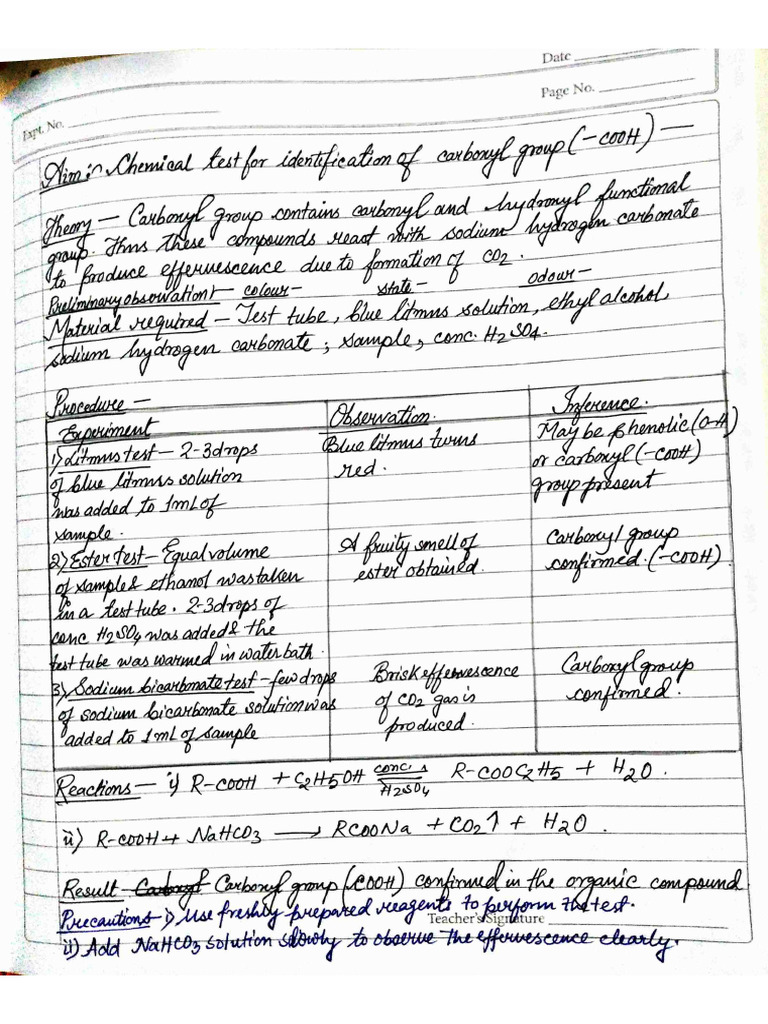 Date
Page No.
Expt. No.
Aim :- Chemical test for identification of carboxyl group (-COOH) —
Theory - Carboxyl group contains carbonyl and hydroxyl functional
group. Thus these compounds react with sodium hydrogen carbonate
to produce effervescence due to formation of CO2.
Preliminary observation - colour - state - odour -
Material required - Test tube, blue litmus solution, ethyl alcohol,
sodium hydrogen carbonate, sample, conc. H2SO4.
Procedure -
Experiment
Observation.
Inference.
1) Litmus test - 2-3 drops
of blue litmus solution
was added to 1 mL of
sample.
Blue litmus turns
red.
May be phenolic (O-H)
or carboxyl (-COOH)
group present
2) Ester test - Equal volume
of sample & ethanol was taken
in a test tube. 2-3 drops of
conc H2SO4 was added & the
test tube was warmed in water bath.
A fruity smell of
ester obtained.
Carboxyl group
confirmed. (-COOH)
3) Sodium bicarbonate test - few drops
of sodium bicarbonate solution was
added to 1 mL of sample
Brisk effervescence
of CO2 gas is
produced.
Carboxyl group
confirmed.
Reactions - i) R-COOH + C2H5OH conc. H2SO4 R-COOC2H5 + H2O.
ii) R-COOH + NaHCO3 → RCOONa + CO2↑ + H2O.
Result - Carboxyl Carboxyl group (-COOH) confirmed in the organic compound
Precautions - i) Use freshly prepared reagents to perform the test.
Teacher's Signature
ii) Add NaHCO3 solution slowly to observe the effervescence clearly.